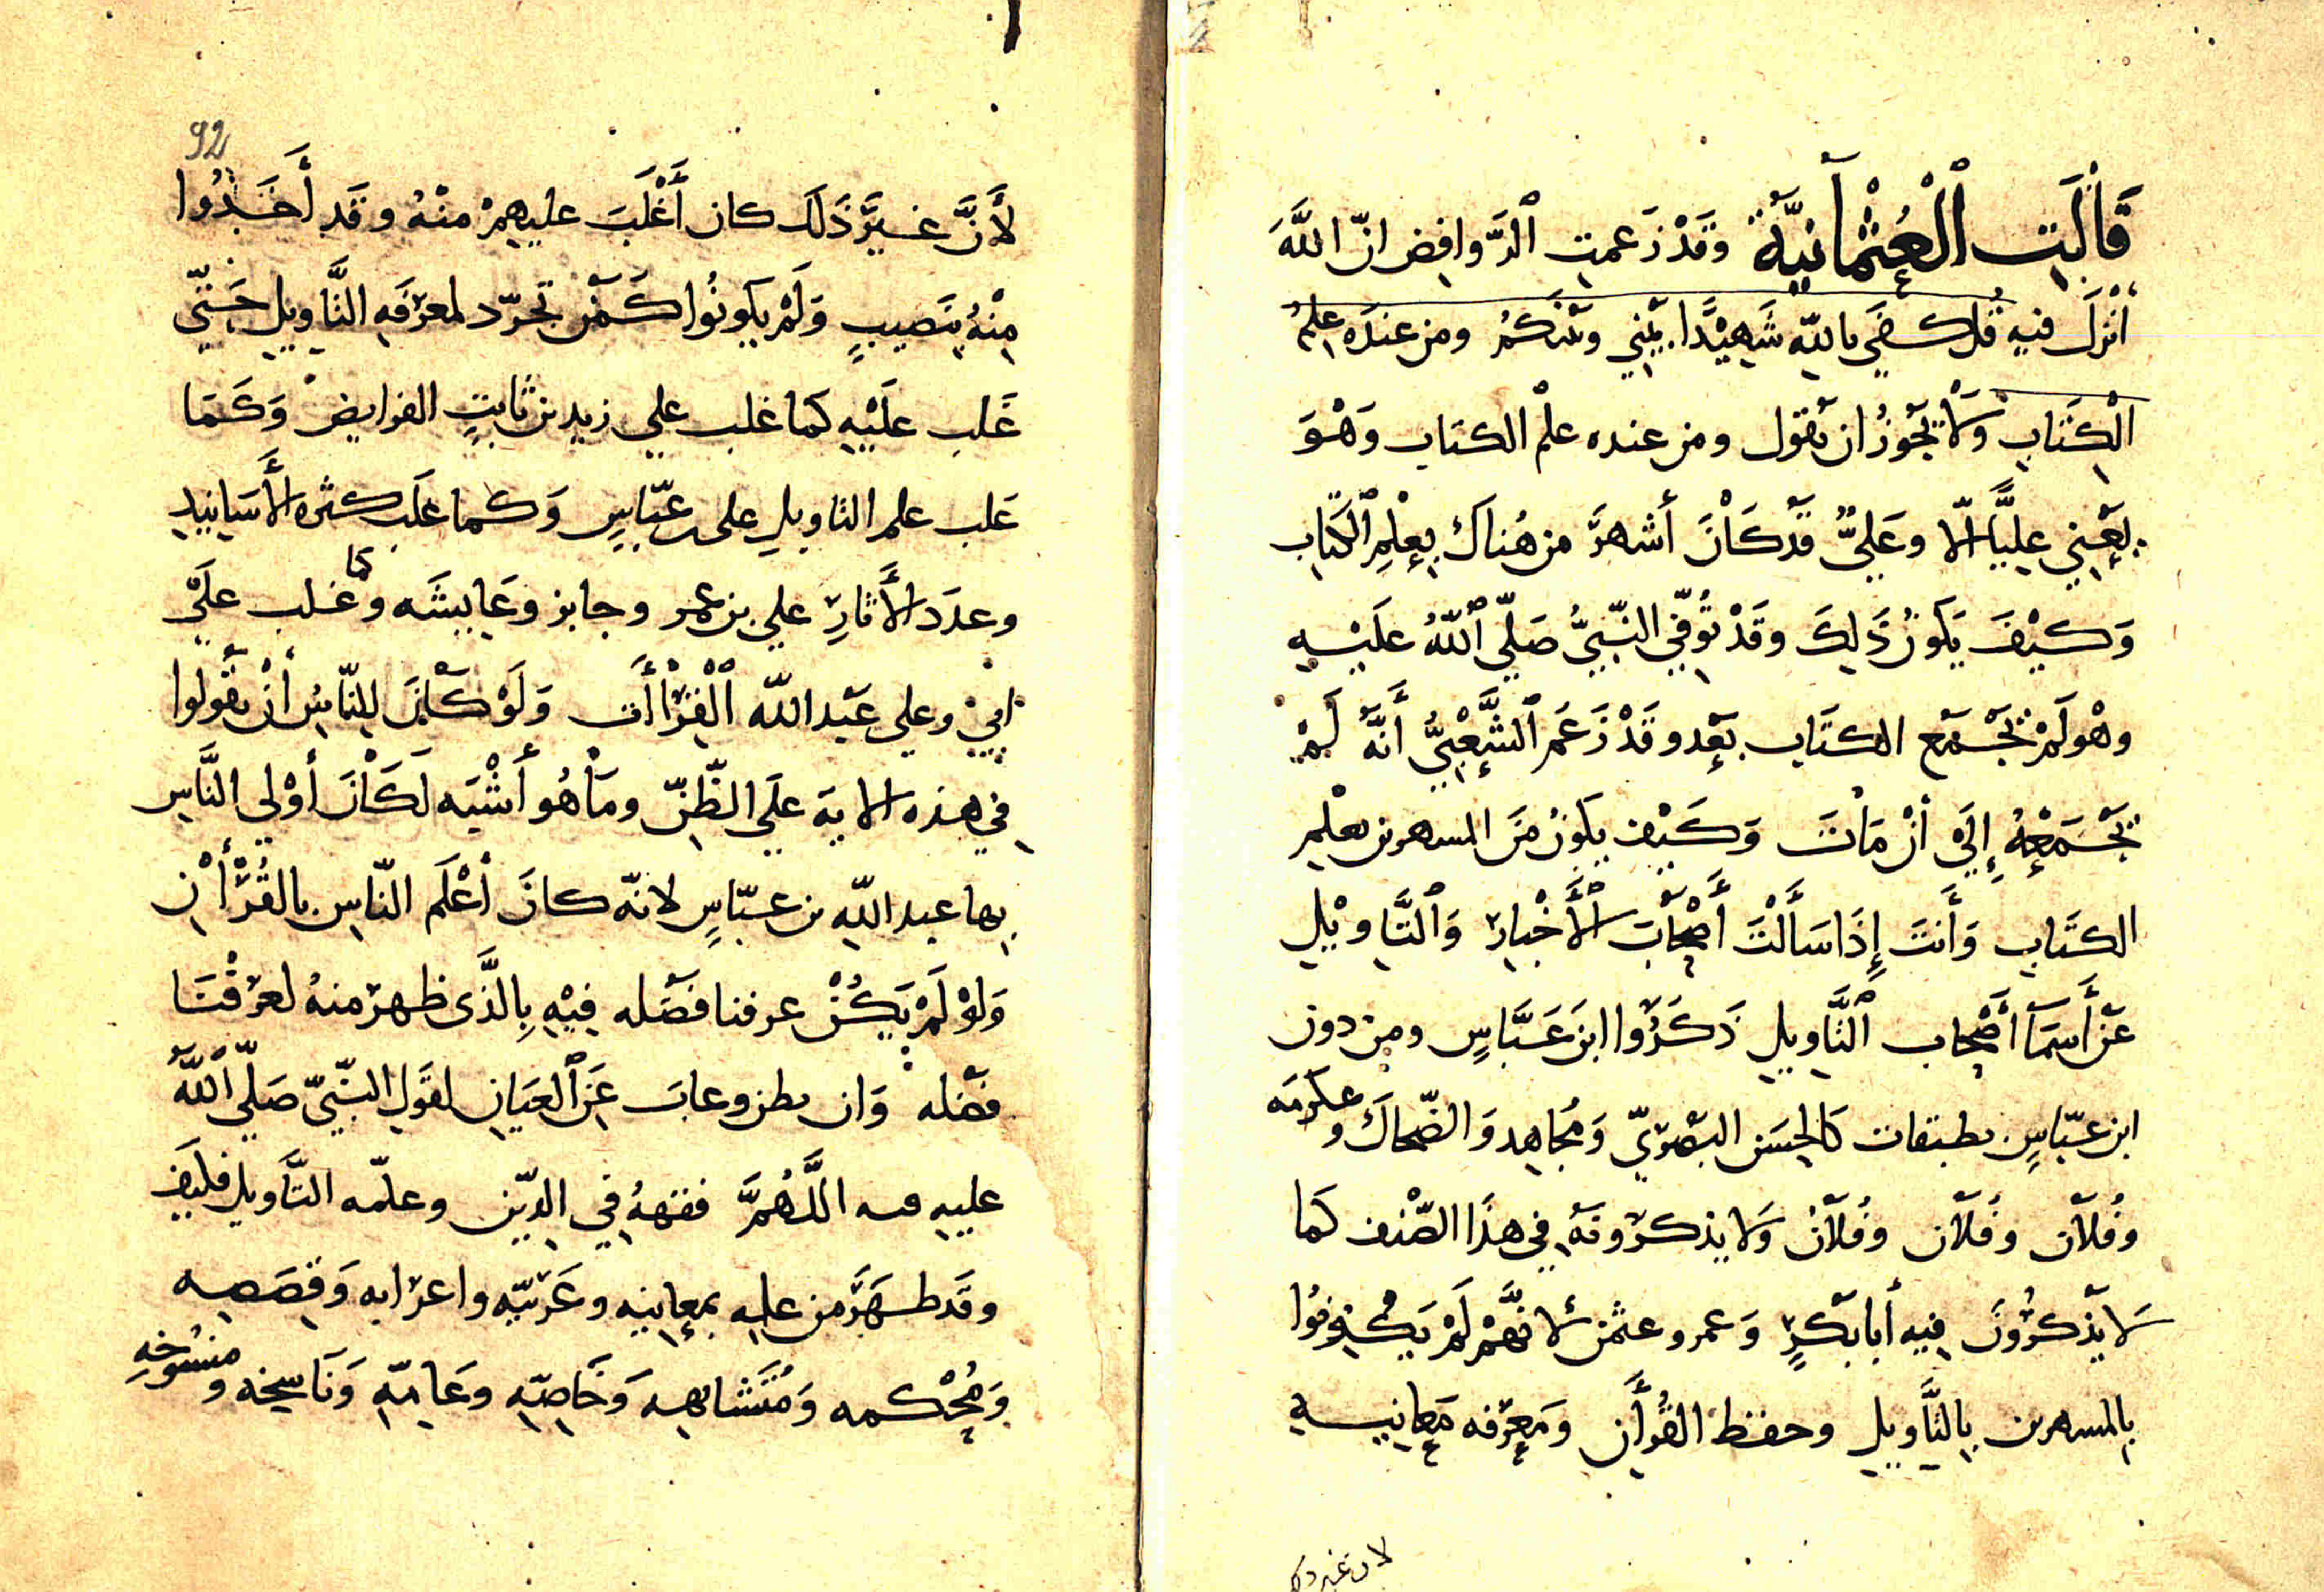 قَالَتِ ٱلْعُثْمَانِيَّةُ وقَدْ زَعمت ٱلرَّوافِض انّ اللَّهَ
أَنْزَلَ فيه قُل كفَي باللّهِ شَهِيْدًا بيْنِي وبَيْنَكُمْ ومن عندَه عِلمُ
الْكِتَابِ وَلَا يَجُوزُ ان يقول ومن عنده علْم الكتاب وَهْوَ
يَعْنِي عليًّا الّا وعَليٌّ قَدْ كَانَ أَشهرَ من هُناكَ بِعِلْمِ ٱلْكتاب
وَكَيْفَ يَكونُ ذَلِكَ وقَدْ تُوُفِّيَ النّبيُّ صَلّي ٱللّهُ علَيْهِ
وهْو لَمْ يَجْمَع الكتَاب بَعْد وقَدْ زَعَمَ ٱلشَّعْبِيُّ أَنَّهُ لَمْ
يَجْمَعْهُ إِلَي أَنْ مَاتَ وَكَيْف يكونُ منَ المسهرىن بعلْمِ
الكتَاب وَأَنتَ إِذَا سَأَلْتَ أَصْحَابَ الأَخْبارِ وَٱلتَّاوِيْلِ
عَنْ أَسمَآ أَصْحاب ٱلتَّاويلِ ذَكَرُوا ابنَ عَبَّاسٍ ومن دون
ابن عبّاسٍ بطبقات كَالحسَن البَصْرِيّ وَمُجاهِد وَالضّحاكَ وعكرمَه
وفُلَان وفُلَان وفُلَان وَلَا يذكرُونَه في هذَا الصّنْف كمَا
لَا يَذْكرُونَ فِيه أَبا بَكْرٍ وَعمر وعثمٰن لأَنَّهُمْ لَمْ يَكُونُوا
بالمسهرىن بِالتَّأويلِ وحفظ القُرأَن ومَعْرِفه مَعانيه
لان غير ذلك
92
لأَنَّ غيرَ ذَلكَ كان أَغْلَبَ عليهِمْ منْهُ وقَد أَخَذُوا
مِنْهُ بِنَصِيبٍ وَلَمْ يكونُوا كَمَنْ تجرّد لمعرْفَهِ التَّاويلِ حَتّي
غَلب علَيْهِ كمَا غلب علي زيد بن ثابتٍ الفرايض وَكَمَا
غلب علم التاويلِ على عبّاسٍ وَكما غلَب كثره الأَسَانيد
وعدَد الأَثارِ علي بن عمر وجابر وعَايشَه وكما غلب علَي
ابيّ وعلي عَبْد اللّه ٱلْقِرَاأَت وَلَوْ كَانَ لِلنّاسِ أَنْ يقُولوا
في هذه الايَة علَي الظّنّ ومَا هُو أَشْبَه لَكَانَ أَوْلي النَّاسِ
بها عبد اللّهِ بن عبّاسٍ لانّه كانَ أَعْلَم النّاسِ بالقُرْأَن
وَلوْ لَمْ يَكُنْ عرفنا فضَله فِيْهِ بِالَّذى ظهر منهُ لعرَفْنَا
فضْله وَان بطن وعابَ عَنِ ٱلعيَانِ لقَولِ النّبيّ صَلّي ٱللّهُ
عليهِ فيه اللَّهُمَّ فقههُ في الدِّين وعلّمه التَّأويل فكيْفَ
وقَد ظهَرَ من علمه بمعانِيْه وعَربيّه واعرابه وَقِصَصه
وَمُحْكمه وَمُتَشابهه وَخَاصِّهِ وعَامّهِ وَنَاسخه ومَنسُوخهِ